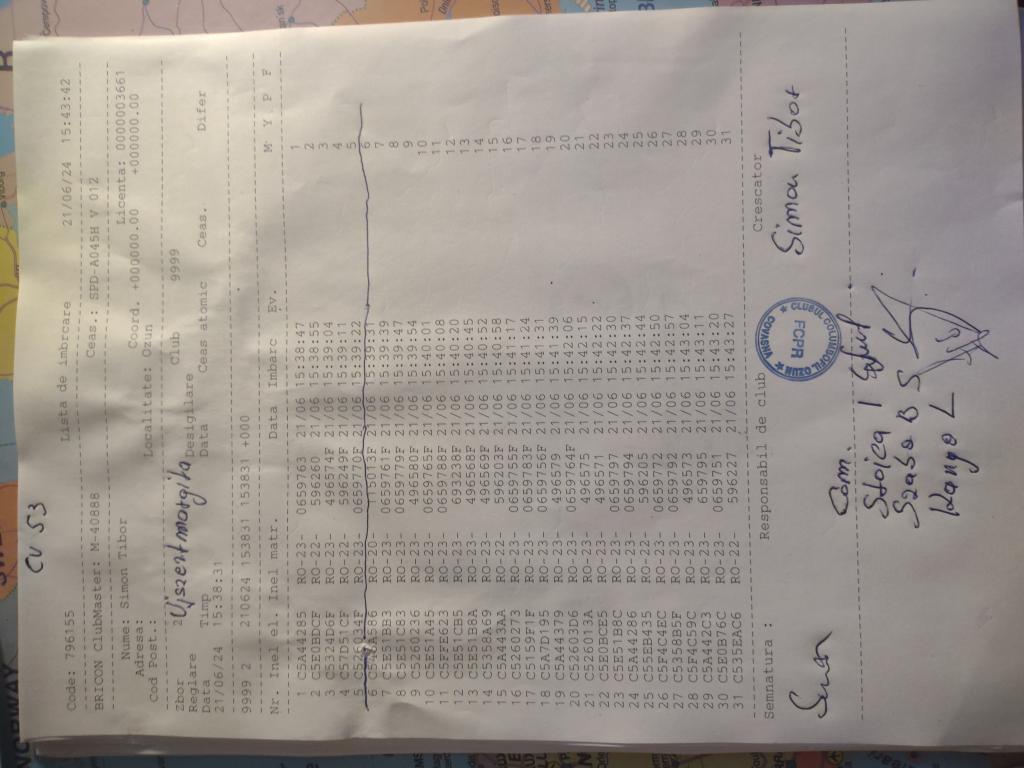 CU 53
Code: 796155 Lista de imbrcare 21/06/24 15:43:42
BRICON ClubMaster: M-40888 Ceas.: SPD-A045H V 012
Nume: Simon Tibor Licenta: 0000003661
Adresa: Coord. +000000.00 +000000.00
Cod Post.: Localitate: Ozun
Zbor 2 Ujszentmargita Club 9999
Reglare Desigilare
Data Timp Data Ceas atomic Ceas. Difer
21/06/24 15:38:31
9999 2 210624 153831 153831 +000
Nr. Inel el. Inel matr. Data Imbarc Ev. M Y P F
1 C5A44285 RO-23- 0659763 21/06 15:38:47 1
2 C5E0BDCF RO-22- 596260 21/06 15:38:55 2
3 C5324D6F RO-23- 496574F 21/06 15:39:04 3
4 C57D51CF RO-22- 596249F 21/06 15:39:11 4
5 C526034F RO-23- 0659770F 21/06 15:39:22 5
6 RO-20- 21/06 15:39:31 6
7 C5E51BB3 RO-23- 0659761F 21/06 15:39:39 7
8 C5E51C83 RO-23- 0659779F 21/06 15:39:47 8
9 C5260236 RO-23- 496580F 21/06 15:39:54 9
10 C5E51A45 RO-23- 0659765F 21/06 15:40:01 10
11 C5FFE623 RO-23- 0659788F 21/06 15:40:08 11
12 C5E51CB5 RO-23- 693238F 21/06 15:40:20 12
13 C5E51B8A RO-23- 496568F 21/06 15:40:45 13
14 C5358A69 RO-23- 496569F 21/06 15:40:52 14
15 C5A443AA RO-22- 596202F 21/06 15:40:58 15
16 C5260273 RO-23- 0659755F 21/06 15:41:17 16
17 C5159F1F RO-23- 0659783F 21/06 15:41:24 17
18 C5A7D195 RO-23- 0659752F 21/06 15:41:31 18
19 C5A44379 RO-23- 496579 21/06 15:41:39 19
20 C52603D6 RO-23- 0659764F 21/06 15:42:06 20
21 C526013A RO-23- 496575 21/06 15:42:15 21
22 C5E0BCE5 RO-23- 496571 21/06 15:42:22 22
23 C5E51B8C RO-23- 0659797 21/06 15:42:30 23
24 C5A44286 RO-23- 0659794 21/06 15:42:37 24
25 C55EB435 RO-22- 596205 21/06 15:42:44 25
26 C5F4C4EC RO-23- 0659772 21/06 15:42:50 26
27 C5358B5F RO-23- 0659792 21/06 15:42:57 27
28 C5F4C59C RO-23- 496573 21/06 15:43:04 28
29 C5A442C3 RO-23- 659795 21/06 15:43:11 29
30 C5E0B76C RO-23- 0659751 21/06 15:43:20 30
31 C535EAC6 RO-22- 596227 21/06 15:43:27 31
Semnatura : Responsabil de club Crescator
Simon Tibor
CLUBUL COLUMBOFIL OZUN COVASNA
FCPR
Com.
Stoica I
Szabo B S
Kango L